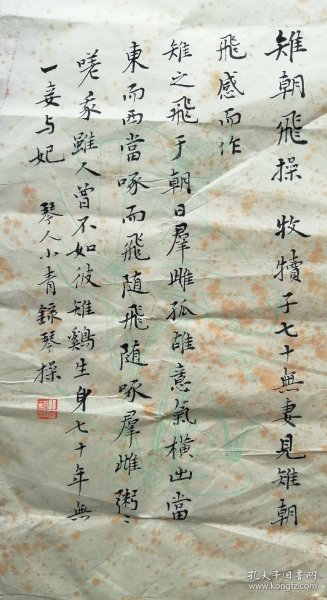 雉朝飛操 牧犢子七十無妻見雉朝
飛感而作
雉之飛于朝日羣雌孤雄意氣橫出當
東而西當啄而飛随飛随啄羣雌粥〻
嗟哉雖人曾不如彼雉鷄生身七十年無
一妾与妃 琴人小青録琴操
孔夫子旧书网